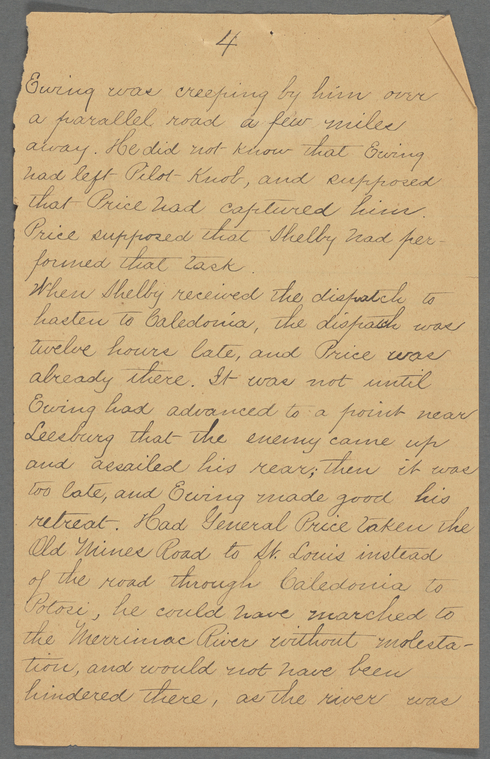 4
Ewing was creeping by him over
a parallel road a few miles
away. He did not know that Ewing
had left Pilot Knob, and supposed
that Price had captured him.
Price supposed that Shelby had per-
formed that task.
When Shelby received the dispatch to
hasten to Caledonia, the dispatch was
twelve hours late, and Price was
already there. It was not until
Ewing had advanced to a point near
Leesburg that the enemy came up
and assailed his rear; then it was
too late, and Ewing made good his
retreat. Had General Price taken the
Old Mines Road to St. Louis instead
of the road through Caledonia to
Potosi, he could have marched to
the Merrimac River without molesta-
tion, and would not have been
hindered there, as the river was